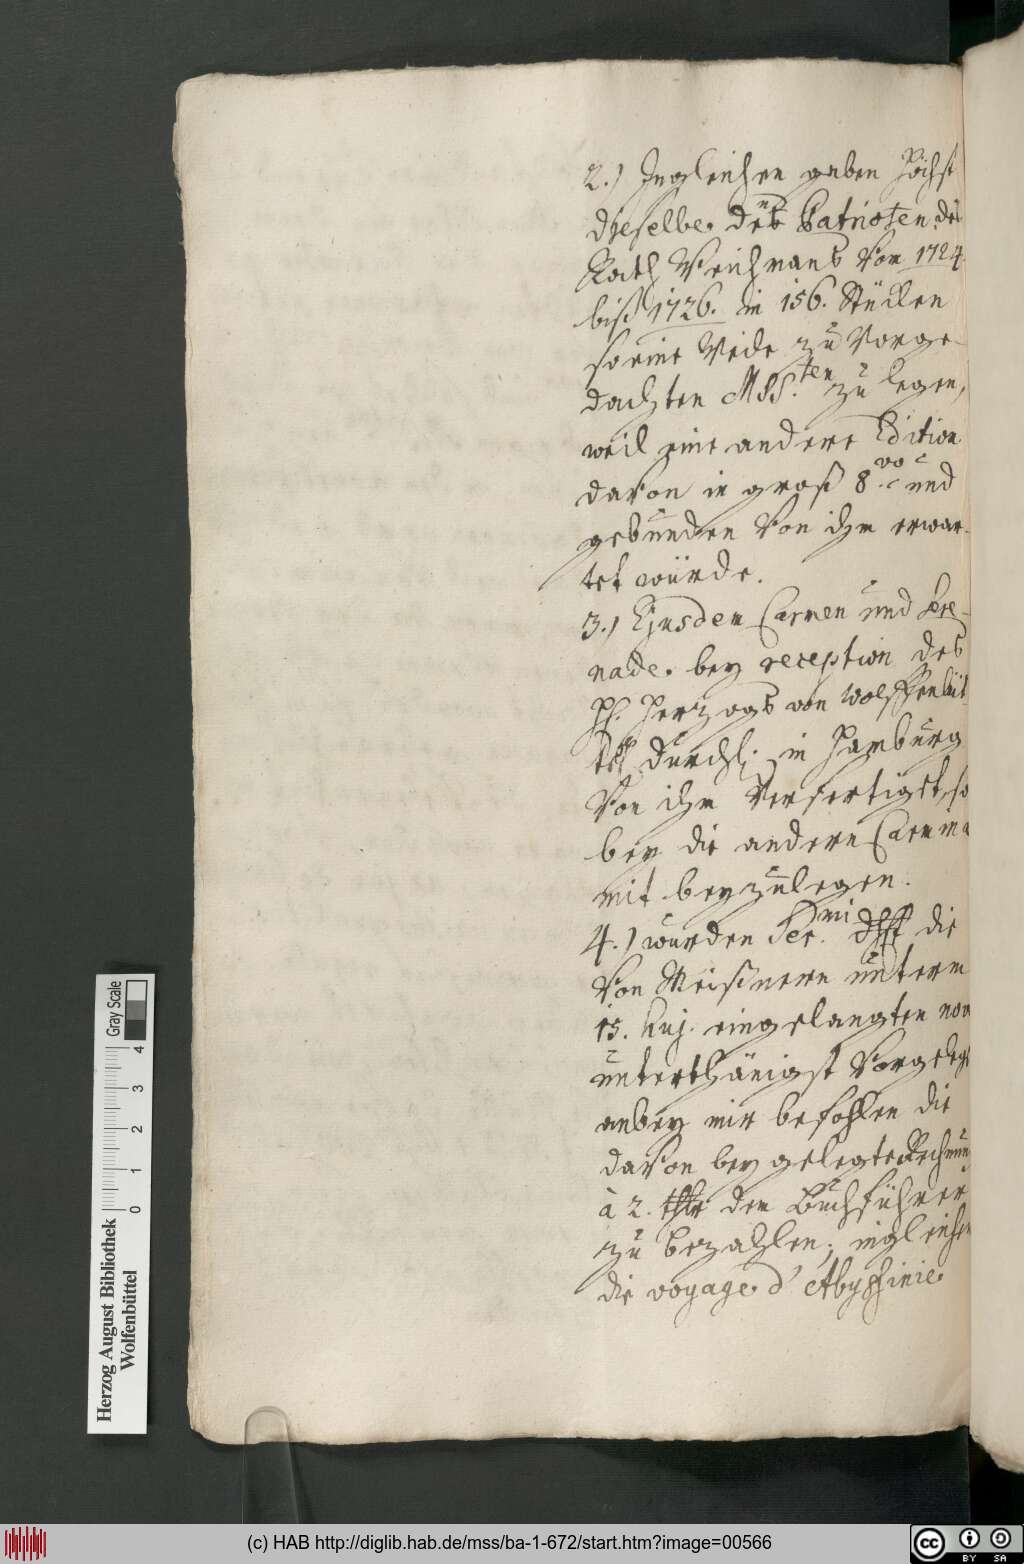 2.) Ingleichen gaben Höchst
dieselbe den Patrioten des
Rath Weichmans von 1724.
biß 1726. in 156. Stücken
so eine Weide zu vorge-
dachten MSS.ten zu legen,
weil eine andere Edition
davon in groß 8.vo und
gebunden von ihm erwar-
tet würde.
3.) Ejusdem Carmen und Sere-
nade bey reception des
H. Herzogs von Wolffenbüt-
tel Durchl. in Hamburg
von ihm verfertiget, so
bey die andern Carmina
mit beyzulegen.
4.) wurden Ser.mi die
von Meißnern unterm
15. huj. eingelangten nova
unterthänigst vorgelegt
anbey mir befohlen die
davon bey gelegte Rechnung
à 2. thlr dem Buchführer
zu bezahlen; ingleichen
die voyage d'Abyssinie
Herzog August Bibliothek
Wolfenbüttel
Gray Scale
0 1 2 3 4
(c) HAB http://diglib.hab.de/mss/ba-1-672/start.htm?image=00566
cc BY SA